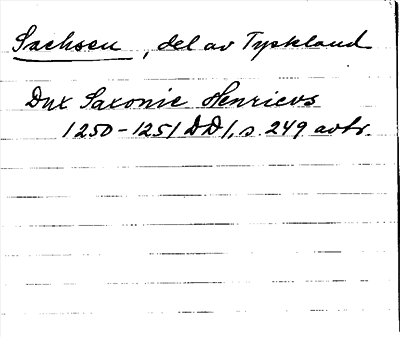 Sachsen, del av Tyskland
Dux Saxonie Henricvs
1250-1251 DD1, s. 249 avtr.